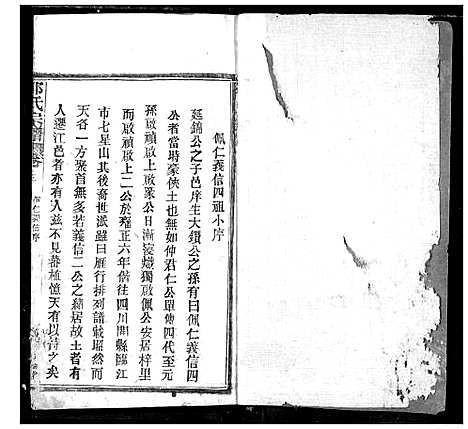 佩仁義信四祖小序
延錦公之子邑庠生大鑽公之孫有曰佩仁義信四
公者當時豪俠士也無如仲君仁公單傳四代至元
孫啟禎啟上啟衆公日漸寖熾獨啟佩公安居梓里
而啟禎啟上二公於雍正六年偕往四川開縣臨江
市七星山其後裔世派雖曰雁行排列譜載昭然而
天各一方聚首無多若義信二公之緒居故土者有
人遷江邑者亦有人茲不見蕃植億天有以特之矣
氏宗譜 卷